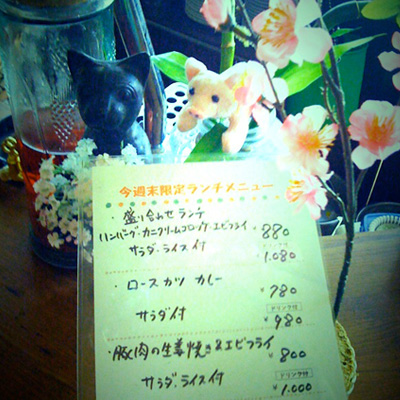 今週末限定ランチメニュー
・盛り合わせランチ
(ハンバーグ・カニクリームコロッケ・エビフライ 880
サラダ・ライス付 1,080
・ロースカツ カレー ¥780
ドリンク付
サラダ付 ¥980
・豚肉の生姜焼き&エビフライ ¥800
ドリンク付
サラダ・ライス付 ¥1,000